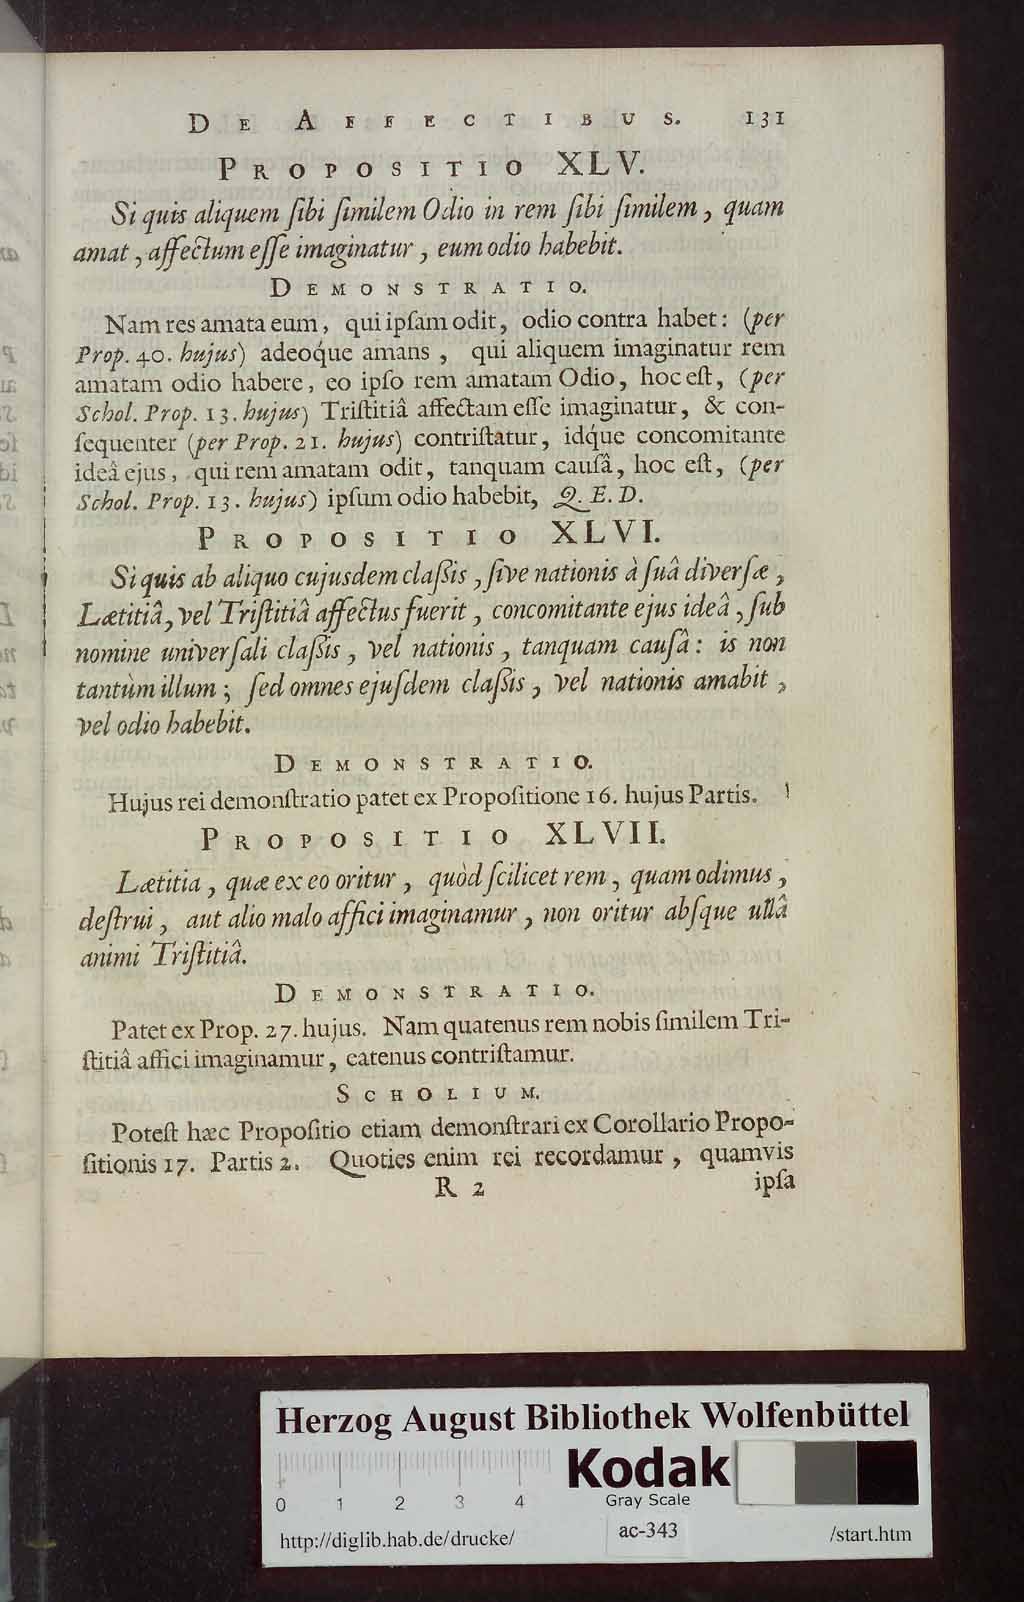 DE AFFECTIBUS. 131
PROPOSITIO XLV.
Si quis aliquem ſibi ſimilem Odio in rem ſibi ſimilem, quam
amat, affectum eſſe imaginatur, eum odio habebit.
DEMONSTRATIO.
Nam res amata eum, qui ipſam odit, odio contra habet: (per
Prop. 40. hujus) adeóque amans, qui aliquem imaginatur rem
amatam odio habere, eo ipſo rem amatam Odio, hoc eſt, (per
Schol. Prop. 13. hujus) Triſtitiâ affectam eſſe imaginatur, & con-
ſequenter (per Prop. 21. hujus) contriſtatur, idque concomitante
ideâ ejus, qui rem amatam odit, tanquam cauſâ, hoc eſt, (per
Schol. Prop. 13. hujus) ipſum odio habebit, Q. E. D.
PROPOSITIO XLVI.
Si quis ab aliquo cujusdem claſſis, ſive nationis à ſuâ diverſæ,
Lætitiâ, vel Triſtitiâ affectus fuerit, concomitante ejus ideâ, ſub
nomine univerſali claſſis, vel nationis, tanquam cauſâ: is non
tantùm illum; ſed omnes ejuſdem claſſis, vel nationis amabit,
vel odio habebit.
DEMONSTRATIO.
Hujus rei demonſtratio patet ex Propoſitione 16. hujus Partis.
PROPOSITIO XLVII.
Lætitia, quæ ex eo oritur, quòd ſcilicet rem, quam odimus,
deſtrui, aut alio malo affici imaginamur, non oritur abſque ullâ
animi Triſtitiâ.
DEMONSTRATIO.
Patet ex Prop. 27. hujus. Nam quatenus rem nobis ſimilem Tri-
ſtitiâ affici imaginamur, eatenus contriſtamur.
SCHOLIUM.
Poteſt hæc Propoſitio etiam demonſtrari ex Corollario Propo-
ſitionis 17. Partis 2. Quoties enim rei recordamur, quamvis
R 2 ipſa
Herzog August Bibliothek Wolfenbüttel
Kodak
Gray Scale
0 1 2 3 4
http://diglib.hab.de/drucke/ ac-343 /start.htm